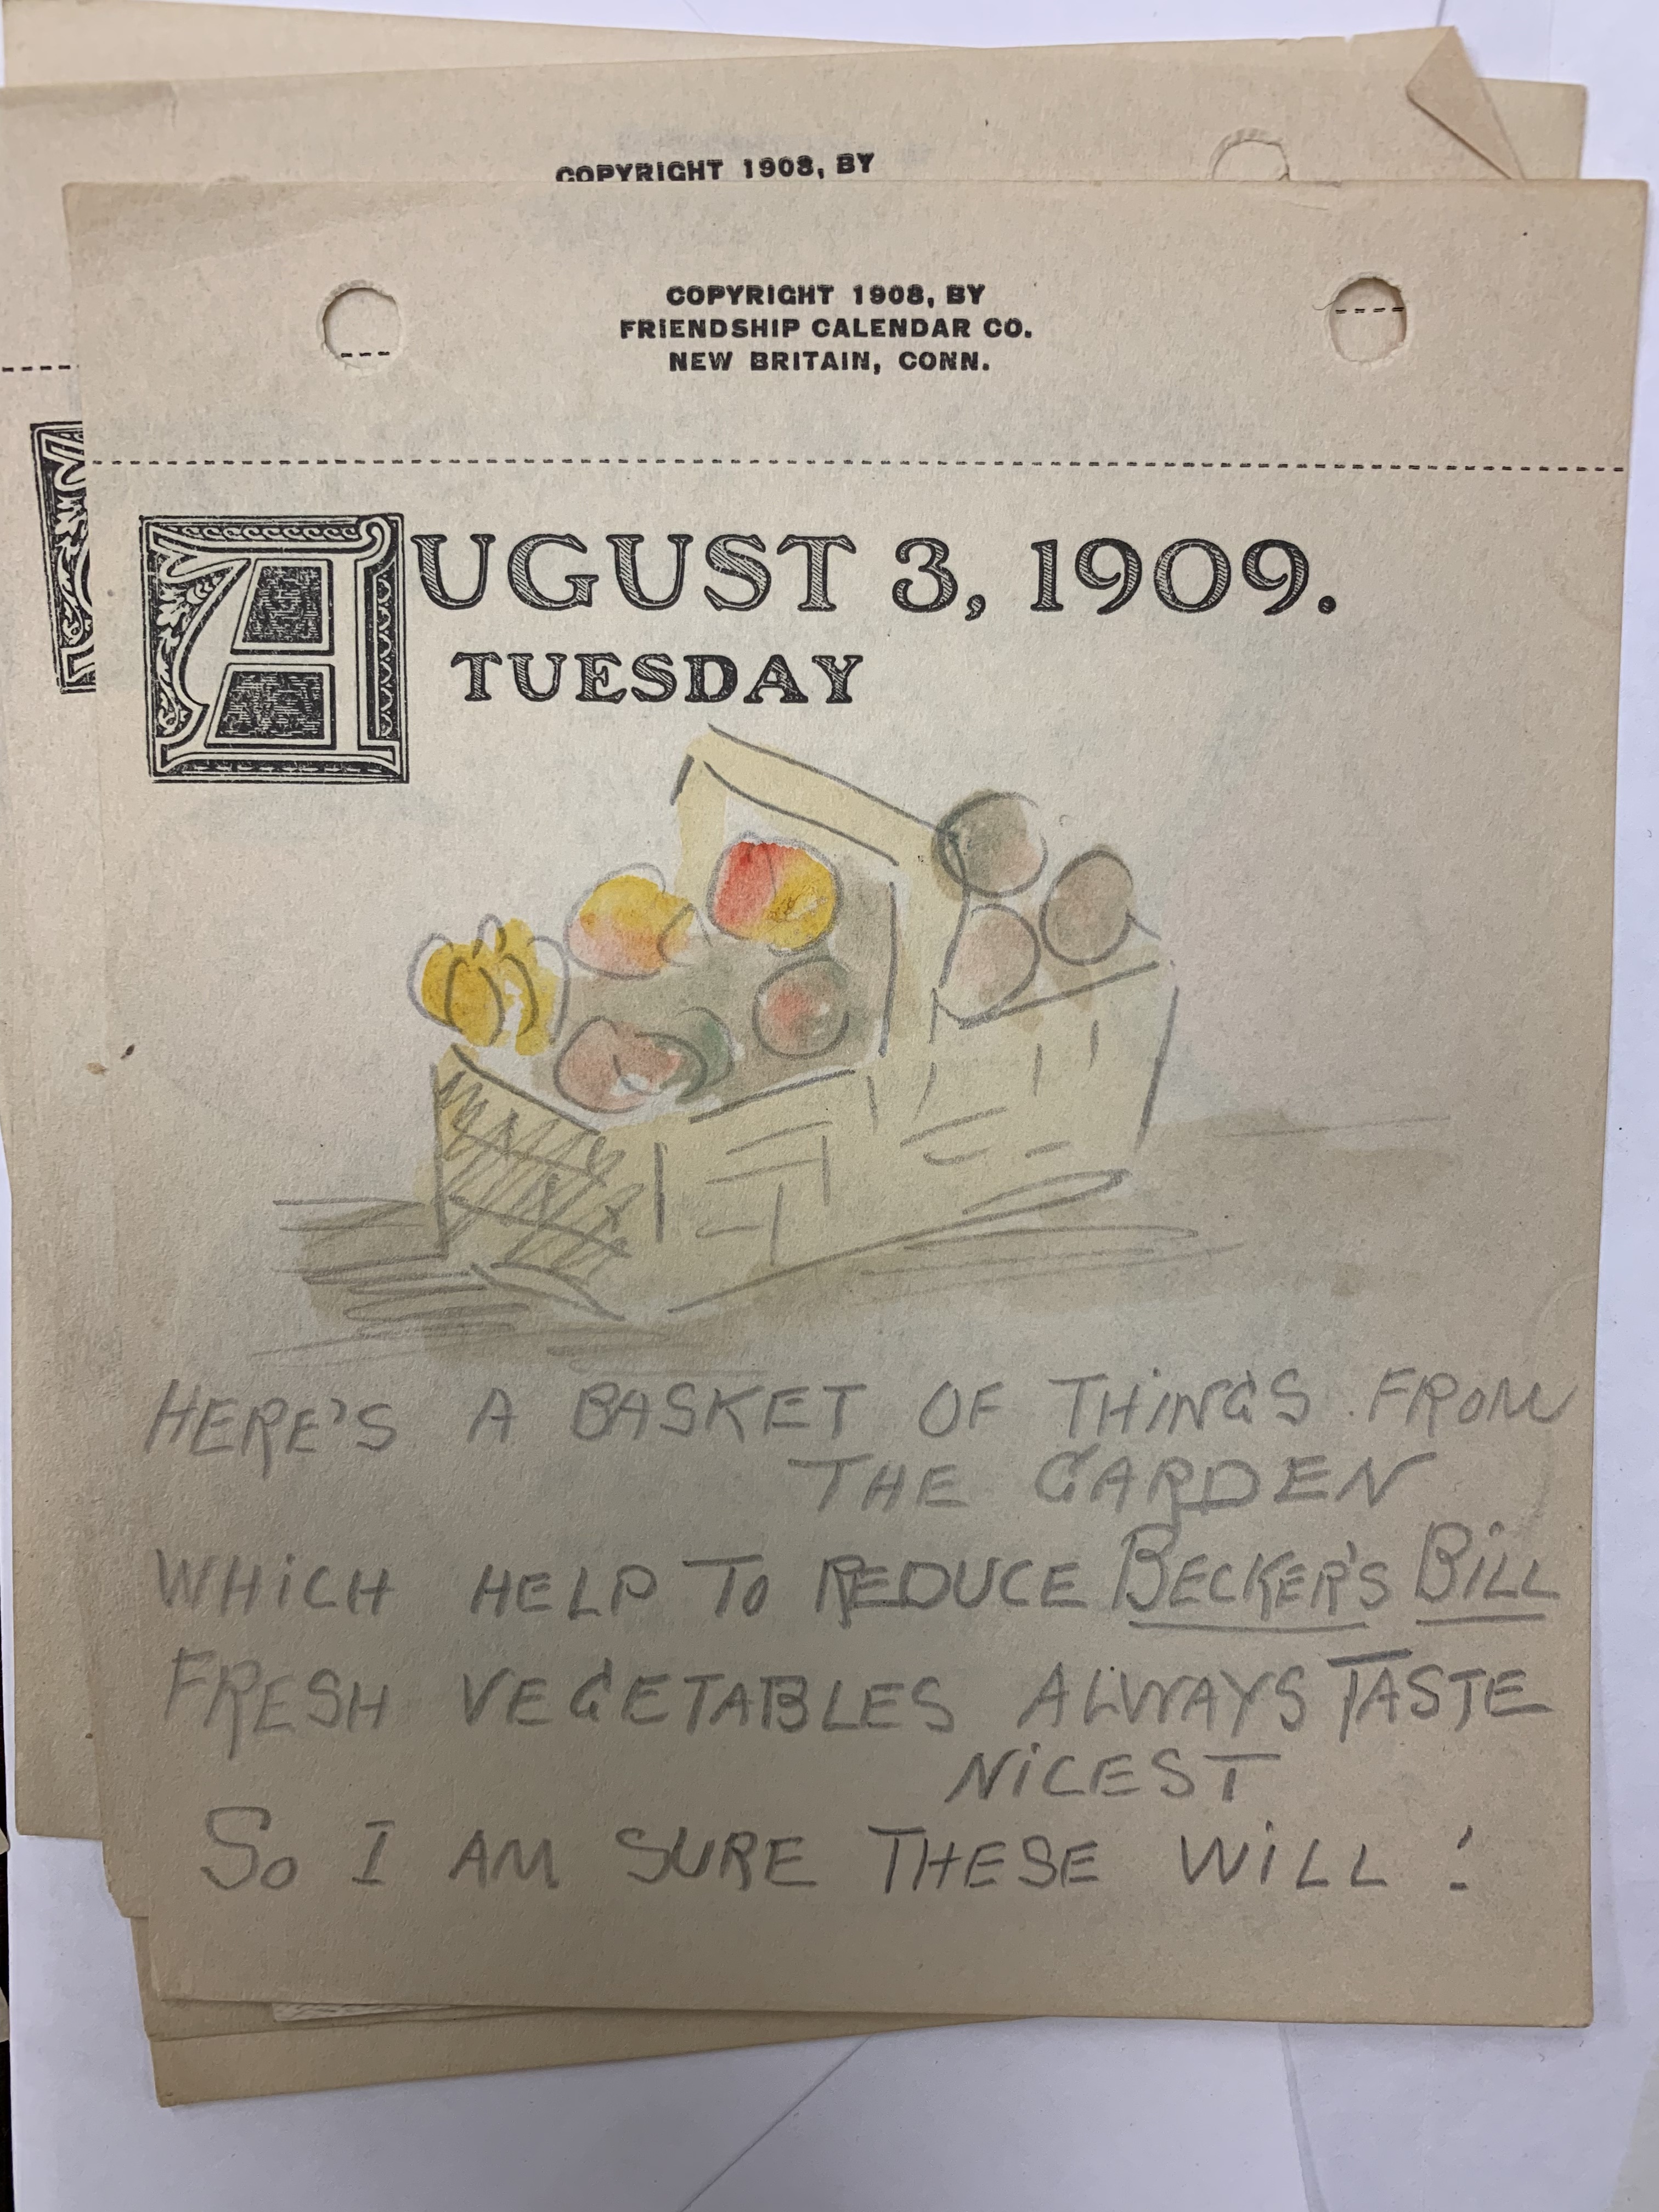 COPYRIGHT 1908, BY
COPYRIGHT 1908, BY
FRIENDSHIP CALENDAR CO.
NEW BRITAIN, CONN.
AUGUST 3, 1909.
TUESDAY
HERE'S A BASKET OF THINGS FROM
THE GARDEN
WHICH HELP TO REDUCE BECKER'S BILL
FRESH VEGETABLES ALWAYS TASTE
NICEST
SO I AM SURE THESE WILL!